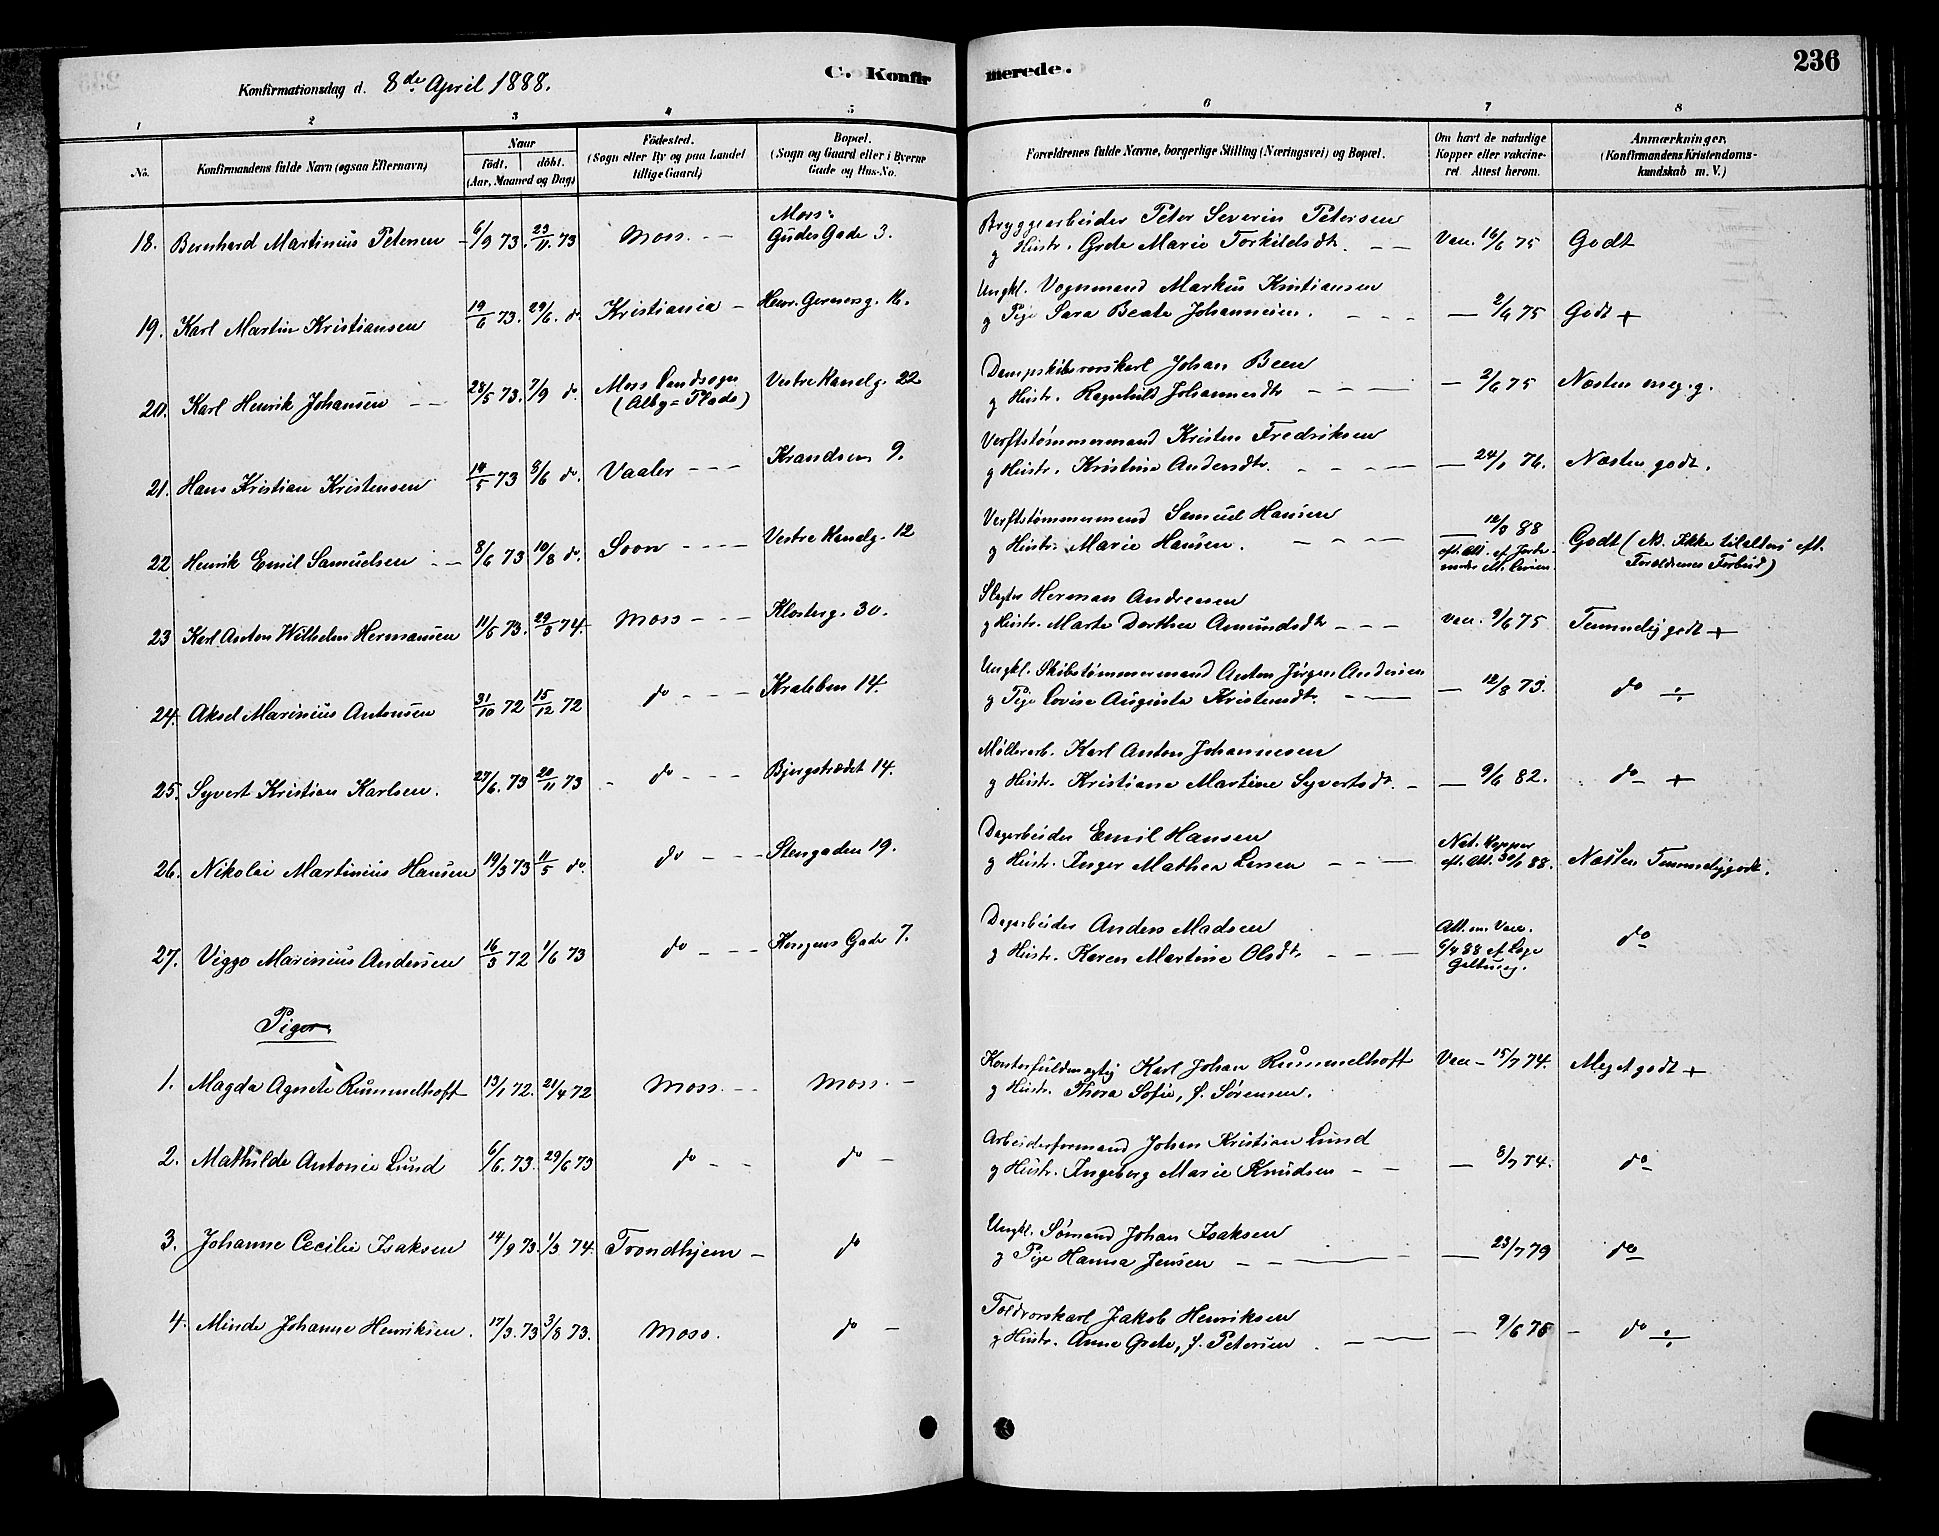 Konfirmationsdag d. 8de April 1888.
C. Konfir
merede.
236
1 2 3 4 5 6 7 8
No.
Konfirmandens fulde Navn (ogsaa Efternavn)
Naar
födt. döbt.
(Aar, Maaned og Dag)
Födested.
(Sogn eller By og paa Landet
tillige Gaard)
Bopæl.
(Sogn og Gaard eller i Byerne
Gade og Hus-No.
Forældrenes fulde Navne, borgerlige Stilling (Næringsvei) og Bopæl.
Om havt de naturlige
Kopper eller vakcine-
ret Attest herom.
Anmærkninger,
(Konfirmandens Kristendoms-
kundskab m. V.)
18. Bernhard Martinius Petersen 6/9 73. 23/11 73 Moss Moss: Gudes Gade 3.
Bryggearbeider Peter Severin Petersen
g Hustr. Grete Marie Torkildsdt. Vacc. 16/6 75 Godt
19. Karl Martin Kristiansen 19/6 73. 29/6 do Kristiania Henr. Gerners g. 16.
Ungkl. Vognmand Markus Kristiansen
g Pige Sara Beate Johannesen. — 2/9 75 Godt +
20. Karl Henrik Johansen 28/5 73. 7/9 do. Moss Landsogn (Alby=Plads) Vestre Kanalg. 22
Dampskibsvorskarl Johan Been
g Hustr. Ragnhild Johannesdt — 2/6 75 Næsten meg. g.
21. Hans Kristian Kristensen 14/5 73 8/6 do. Vaaler Krandsen 9.
Verftstømmermand Kristen Fredriksen
g Hustr. Kristine Andersdt. — 24/1 76. Næsten godt.
22 Henrik Emil Samuelsen 8/6 73 10/8 do. Soon Vestre Kanalg. 12
Verftstømmermand Samuel Hansen
g Hustr. Marie Hansen. — 12/3 88
eft. Att. af Jorde-
moder
Godt (NB. Ikke tilalters eft.
Forældrenes Forbud)
23 Karl Anton Wilhelm Hermansen 11/5 73. 29/3 74. Moss Klosterg. 30.
Slagter Herman Andresen
g Hustr. Marte Dorthea Amundsdt Vacc. 9/6 75 Temmelig godt +
24. Aksel Marinius Antonsen 31/10 72 15/12 72 do Kraleben 14.
Ungkl. Skibstømmermand Anton Jørgen Andersen
g Pige Lovise Augusta Kristensdt. — 12/8 73. do ÷
25. Syvert Kristian Karlsen. 27/6. 73 20/11 73 do Bjergstrædet 14.
Møllerarb. Karl Anton Johannesen
g Hustr. Kristiane Martine Syvertsdt. — 9/6 82. do +
26. Nikolai Martinius Hansen 19/3 73 11/5 do. do Stengaden 19.
Dagarbeider Emil Hansen
g Hustr. Inger Mathea Larsen Nat. Kopper
eft. Att. 30/1 88. Næsten Temmelig godt.
27. Viggo Marinius Andersen 16/3 72 1/6 73 do Kongens Gade 7.
Dagarbeider Anders Madsen
g Hustr. Karen Martine Olsdt. Att. om Vacc.
6/4 88 af Læge
Galtung. do
Piger
1. Magda Agnete Rummelhoff 13/1 72. 21/4 72 Moss Moss.
Kontorfuldmægtig Karl Johan Rummelhoff
g Hustr. Thora Sofie, f. Sørensen. Vacc 15/7 74. Meget godt +
2. Mathilde Antonie Lund 6/6. 73. 29/6 73 do do
Arbeiderformand Johan Kristian Lund
g Hustr. Ingeborg Marie Knudsen — 8/7 74. do
3. Johanne Cecilie Isaksen 14/9 73. 1/3 74. Trondhjem do
Ungkl. Sømand Johan Isaksen
g Pige Hanna Jensen — 23/7 79 do
4. Minda Johanne Henriksen. 17/3. 73 3/8 73. Moss. do
Toldvorskarl Jakob Henriksen
g Hustr. Anne Grete, f. Petersen — 9/6 76 do ÷